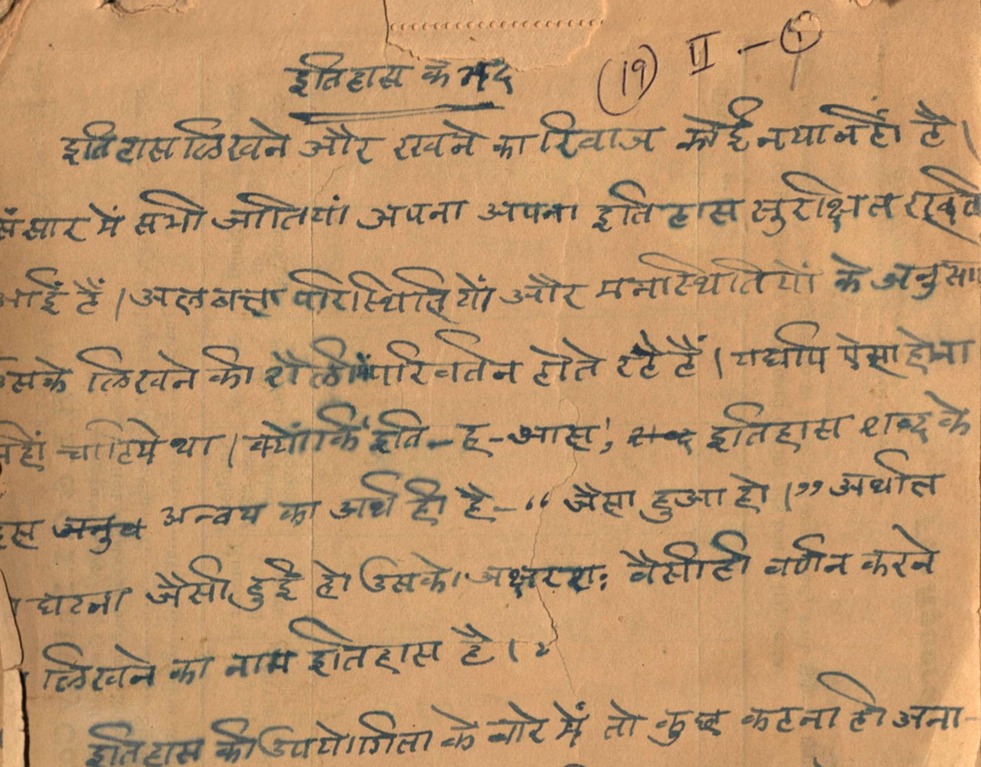 इतिहास के भेद
(19) II - ①
इतिहास लिखने और रखने का रिवाज कोई नया नहीं है।
संसार में सभी जातियां अपना अपना इतिहास सुरक्षित रखती
आई हैं। अलबत्ता परिस्थितियों और मनःस्थितियों के अनुसार
उसके लिखने की शैली में परिवर्तन होते रहे हैं। यद्यपि ऐसा होना
नहीं चाहिये था। क्योंकि 'इति-ह-आस', शब्द इतिहास शब्द के
इस अनुव अन्वय का अर्थ ही है - “जैसा हुआ हो।” अर्थात
घटना जैसी हुई हो उसको अक्षरशः वैसी ही वर्णन करने
लिखने का नाम इतिहास है।"
इतिहास की उपयोगिता के बारे में तो कुछ कहना ही अना-